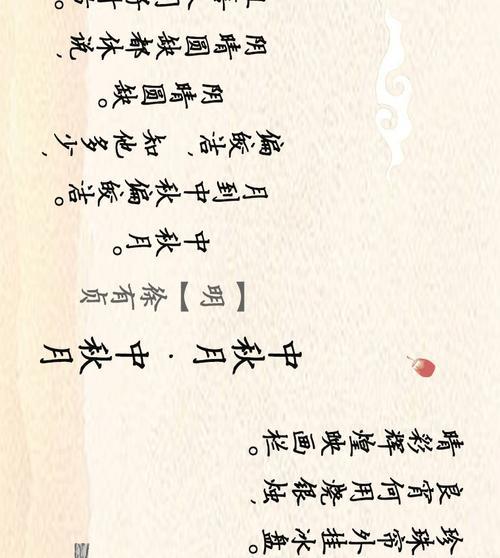 珍珠帘外挂冰盘。
良宵何用烧银烛，
晴彩辉煌映画栏。
中秋月·中秋月
【明】徐有贞
中秋月。
月到中秋偏皎洁。
偏皎洁，知他多少，
阴晴圓缺。
阴晴圓缺都休说，